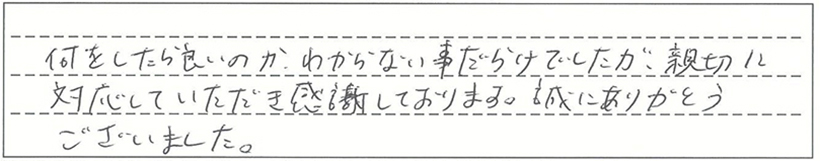 何をしたら良いのか、わからない事だらけでしたが、親切に
対応していただき感謝しております。誠にありがとう
ございました。